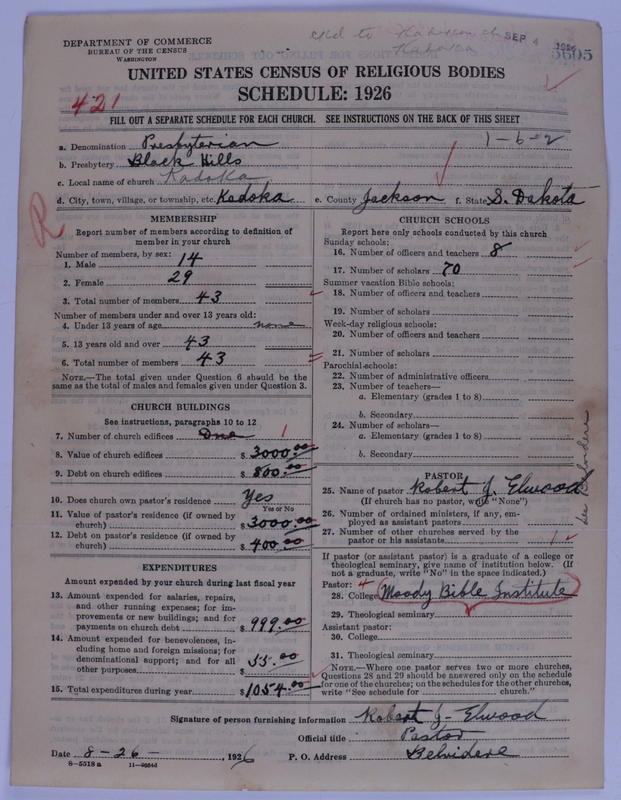 DEPARTMENT OF COMMERCE
BUREAU OF THE CENSUS
WASHINGTON
SEP 4 1926
5605
UNITED STATES CENSUS OF RELIGIOUS BODIES
SCHEDULE: 1926
421
FILL OUT A SEPARATE SCHEDULE FOR EACH CHURCH. SEE INSTRUCTIONS ON THE BACK OF THIS SHEET
1-6-2
a. Denomination Presbyterian
b. Presbytery Black Hills
c. Local name of church Kadoka
d. City, town, village, or township, etc. Kadoka e. County Jackson f. State S. Dakota
R
MEMBERSHIP
Report number of members according to definition of
member in your church
Number of members, by sex:
1. Male 14
2. Female 29
3. Total number of members 43
Number of members under and over 13 years old:
4. Under 13 years of age none
5. 13 years old and over 43
6. Total number of members 43
NOTE.—The total given under Question 6 should be the
same as the total of males and females given under Question 3.
CHURCH BUILDINGS
See instructions, paragraphs 10 to 12
7. Number of church edifices One 1
8. Value of church edifices $ 3000.00
9. Debt on church edifices $ 800.00
10. Does church own pastor's residence Yes
Yes or No
11. Value of pastor's residence (if owned by
church) $ 3000.00
12. Debt on pastor's residence (if owned by
church) $ 400.00
EXPENDITURES
Amount expended by your church during last fiscal year
13. Amount expended for salaries, repairs,
and other running expenses; for im-
provements or new buildings; and for
payments on church debt $ 999.00
14. Amount expended for benevolences, in-
cluding home and foreign missions; for
denominational support; and for all
other purposes $ 55.00
15. Total expenditures during year $ 1054.00
CHURCH SCHOOLS
Report here only schools conducted by this church
Sunday schools:
16. Number of officers and teachers 8
17. Number of scholars 70
Summer vacation Bible schools:
18. Number of officers and teachers
19. Number of scholars
Week-day religious schools:
20. Number of officers and teachers
21. Number of scholars
Parochial schools:
22. Number of administrative officers
23. Number of teachers—
a. Elementary (grades 1 to 8)
b. Secondary
24. Number of scholars—
a. Elementary (grades 1 to 8)
b. Secondary
See Belvidere
PASTOR
25. Name of pastor Robert J. Elwood
(If church has no pastor, write "None")
26. Number of ordained ministers, if any, em-
ployed as assistant pastors
27. Number of other churches served by the
pastor or his assistants 1
If pastor (or assistant pastor) is a graduate of a college or
theological seminary, give name of institution below. (If
not a graduate, write "No" in the space indicated.)
Pastor: 4
28. College Moody Bible Institute
29. Theological seminary
Assistant pastor:
30. College
31. Theological seminary
NOTE.—Where one pastor serves two or more churches,
Questions 28 and 29 should be answered only on the schedule
for one of the churches; on the schedules for the other churches,
write "See schedule for church."
Signature of person furnishing information Robert J. Elwood
Official title Pastor
Date 8-26-, 1926 P. O. Address Belvidere
8-5518 a